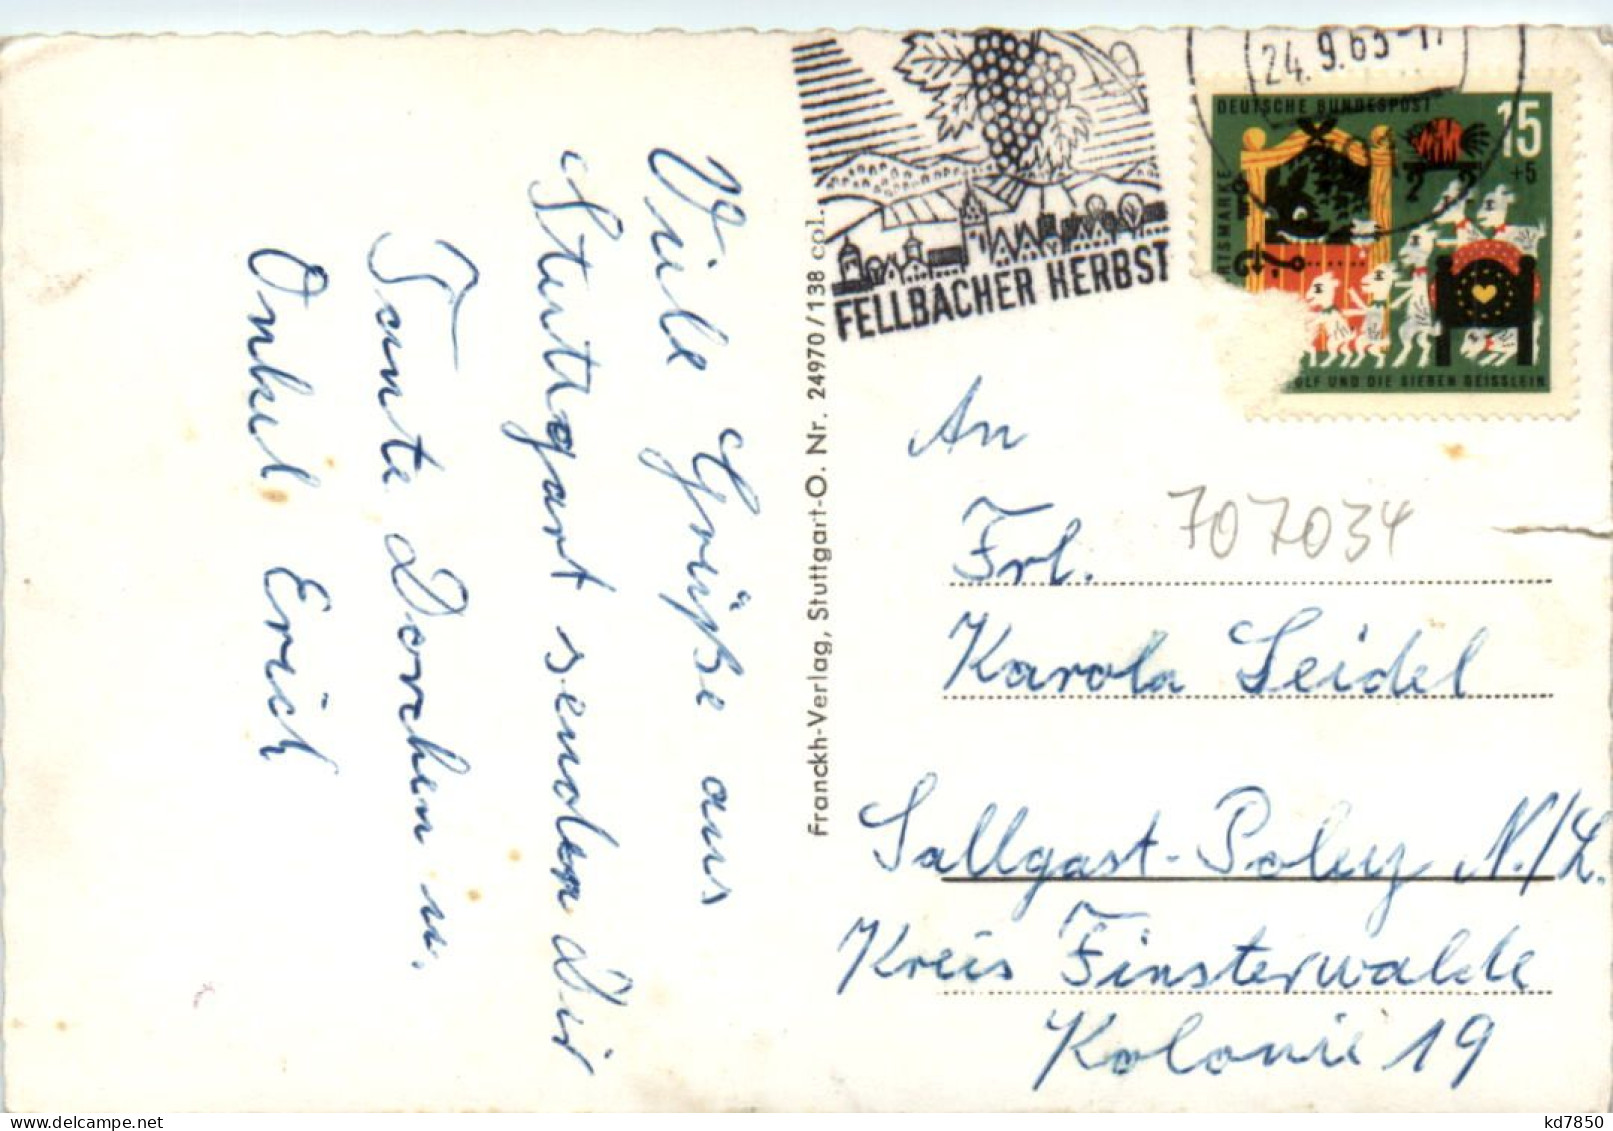 Viele Grüße aus
Stuttgart senden Dir
Tante Dorchen u.
Onkel Erich
Franckh-Verlag, Stuttgart-O. Nr. 24970/138 col.
FELLBACHER HERBST
24.9.63-17
DEUTSCHE BUNDESPOST
15
+5
RTSMARKE
OLF UND DIE SIEBEN GEISSLEIN
An
Frl.
707034
Karola Seidel
Sallgast-Poley N./L.
Kreis Finsterwalde
Kolonie 19
kd7850